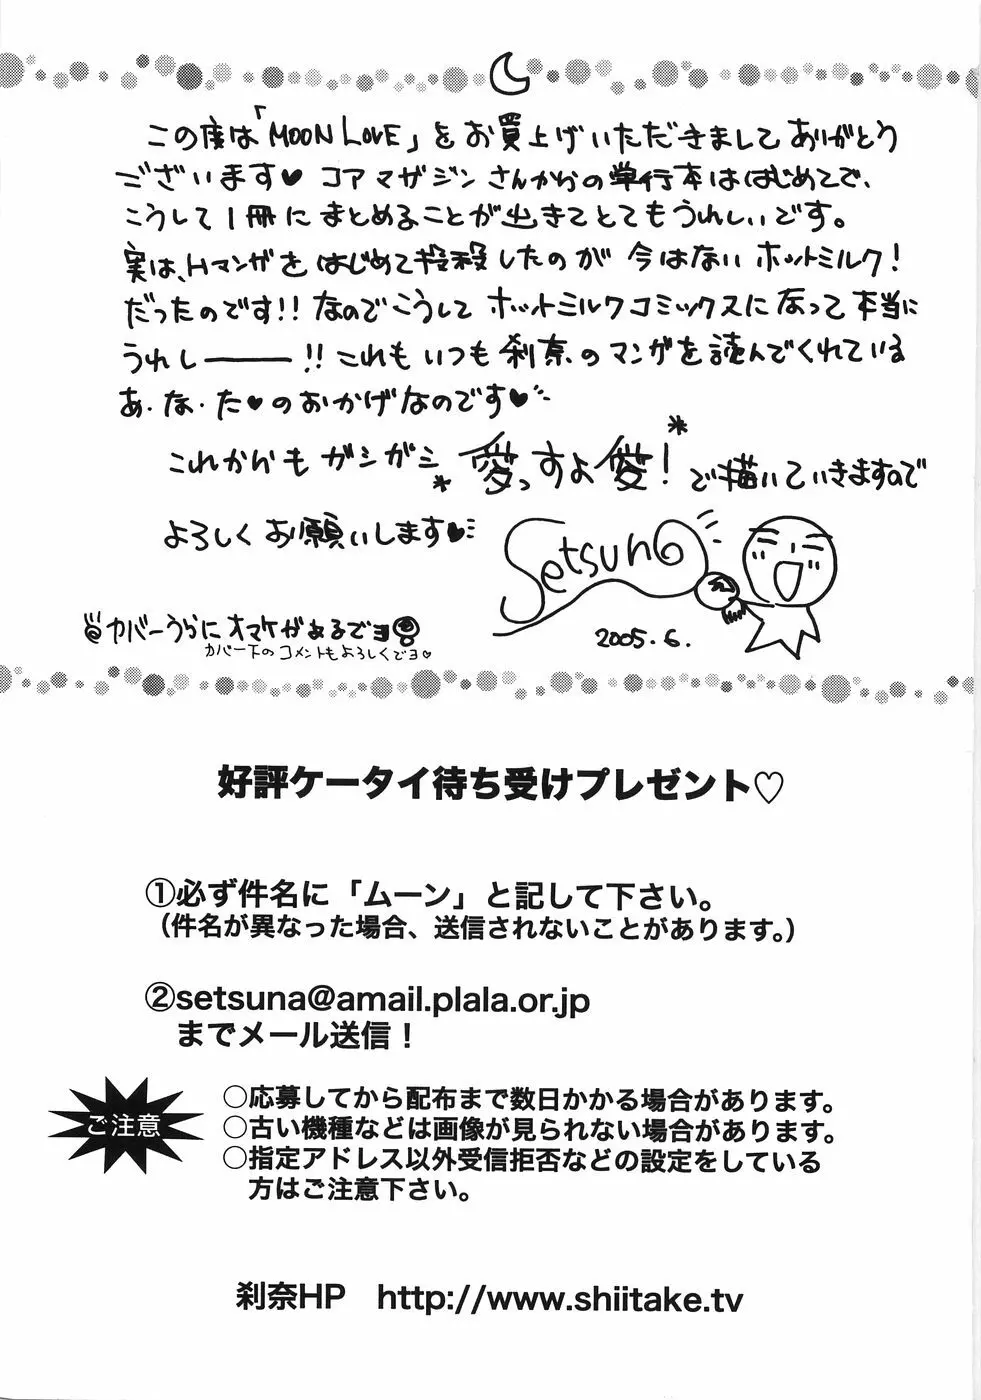 この度は「MOON LOVE」をお買上げいただきましてありがとう
ございます♥ コアマガジンさんからの単行本ははじめてで、
こうして1冊にまとめることが出きてとてもうれしいです。
実は、Hマンガをはじめて投稿したのが今はないホットミルク!
だったのです!! なのでこうしてホットミルクコミックスになって本当に
うれしーーー!! これもいつも刹奈のマンガを読んでくれている
あ・な・た♥のおかげなのです♥
これからもガシガシ*愛っすよ愛!*で描いていきますので
よろしくお願いします♥
Setsuna
2005.6.
カバーうらにオマケがあるでヨ
カバー下のコメントもよろしくでヨ♥
好評ケータイ待ち受けプレゼント♡
①必ず件名に「ムーン」と記して下さい。
(件名が異なった場合、送信されないことがあります。)
②setsuna@amail.plala.or.jp
までメール送信!
ご注意
○応募してから配布まで数日かかる場合があります。
○古い機種などは画像が見られない場合があります。
○指定アドレス以外受信拒否などの設定をしている
方はご注意下さい。
刹奈HP http://www.shiitake.tv